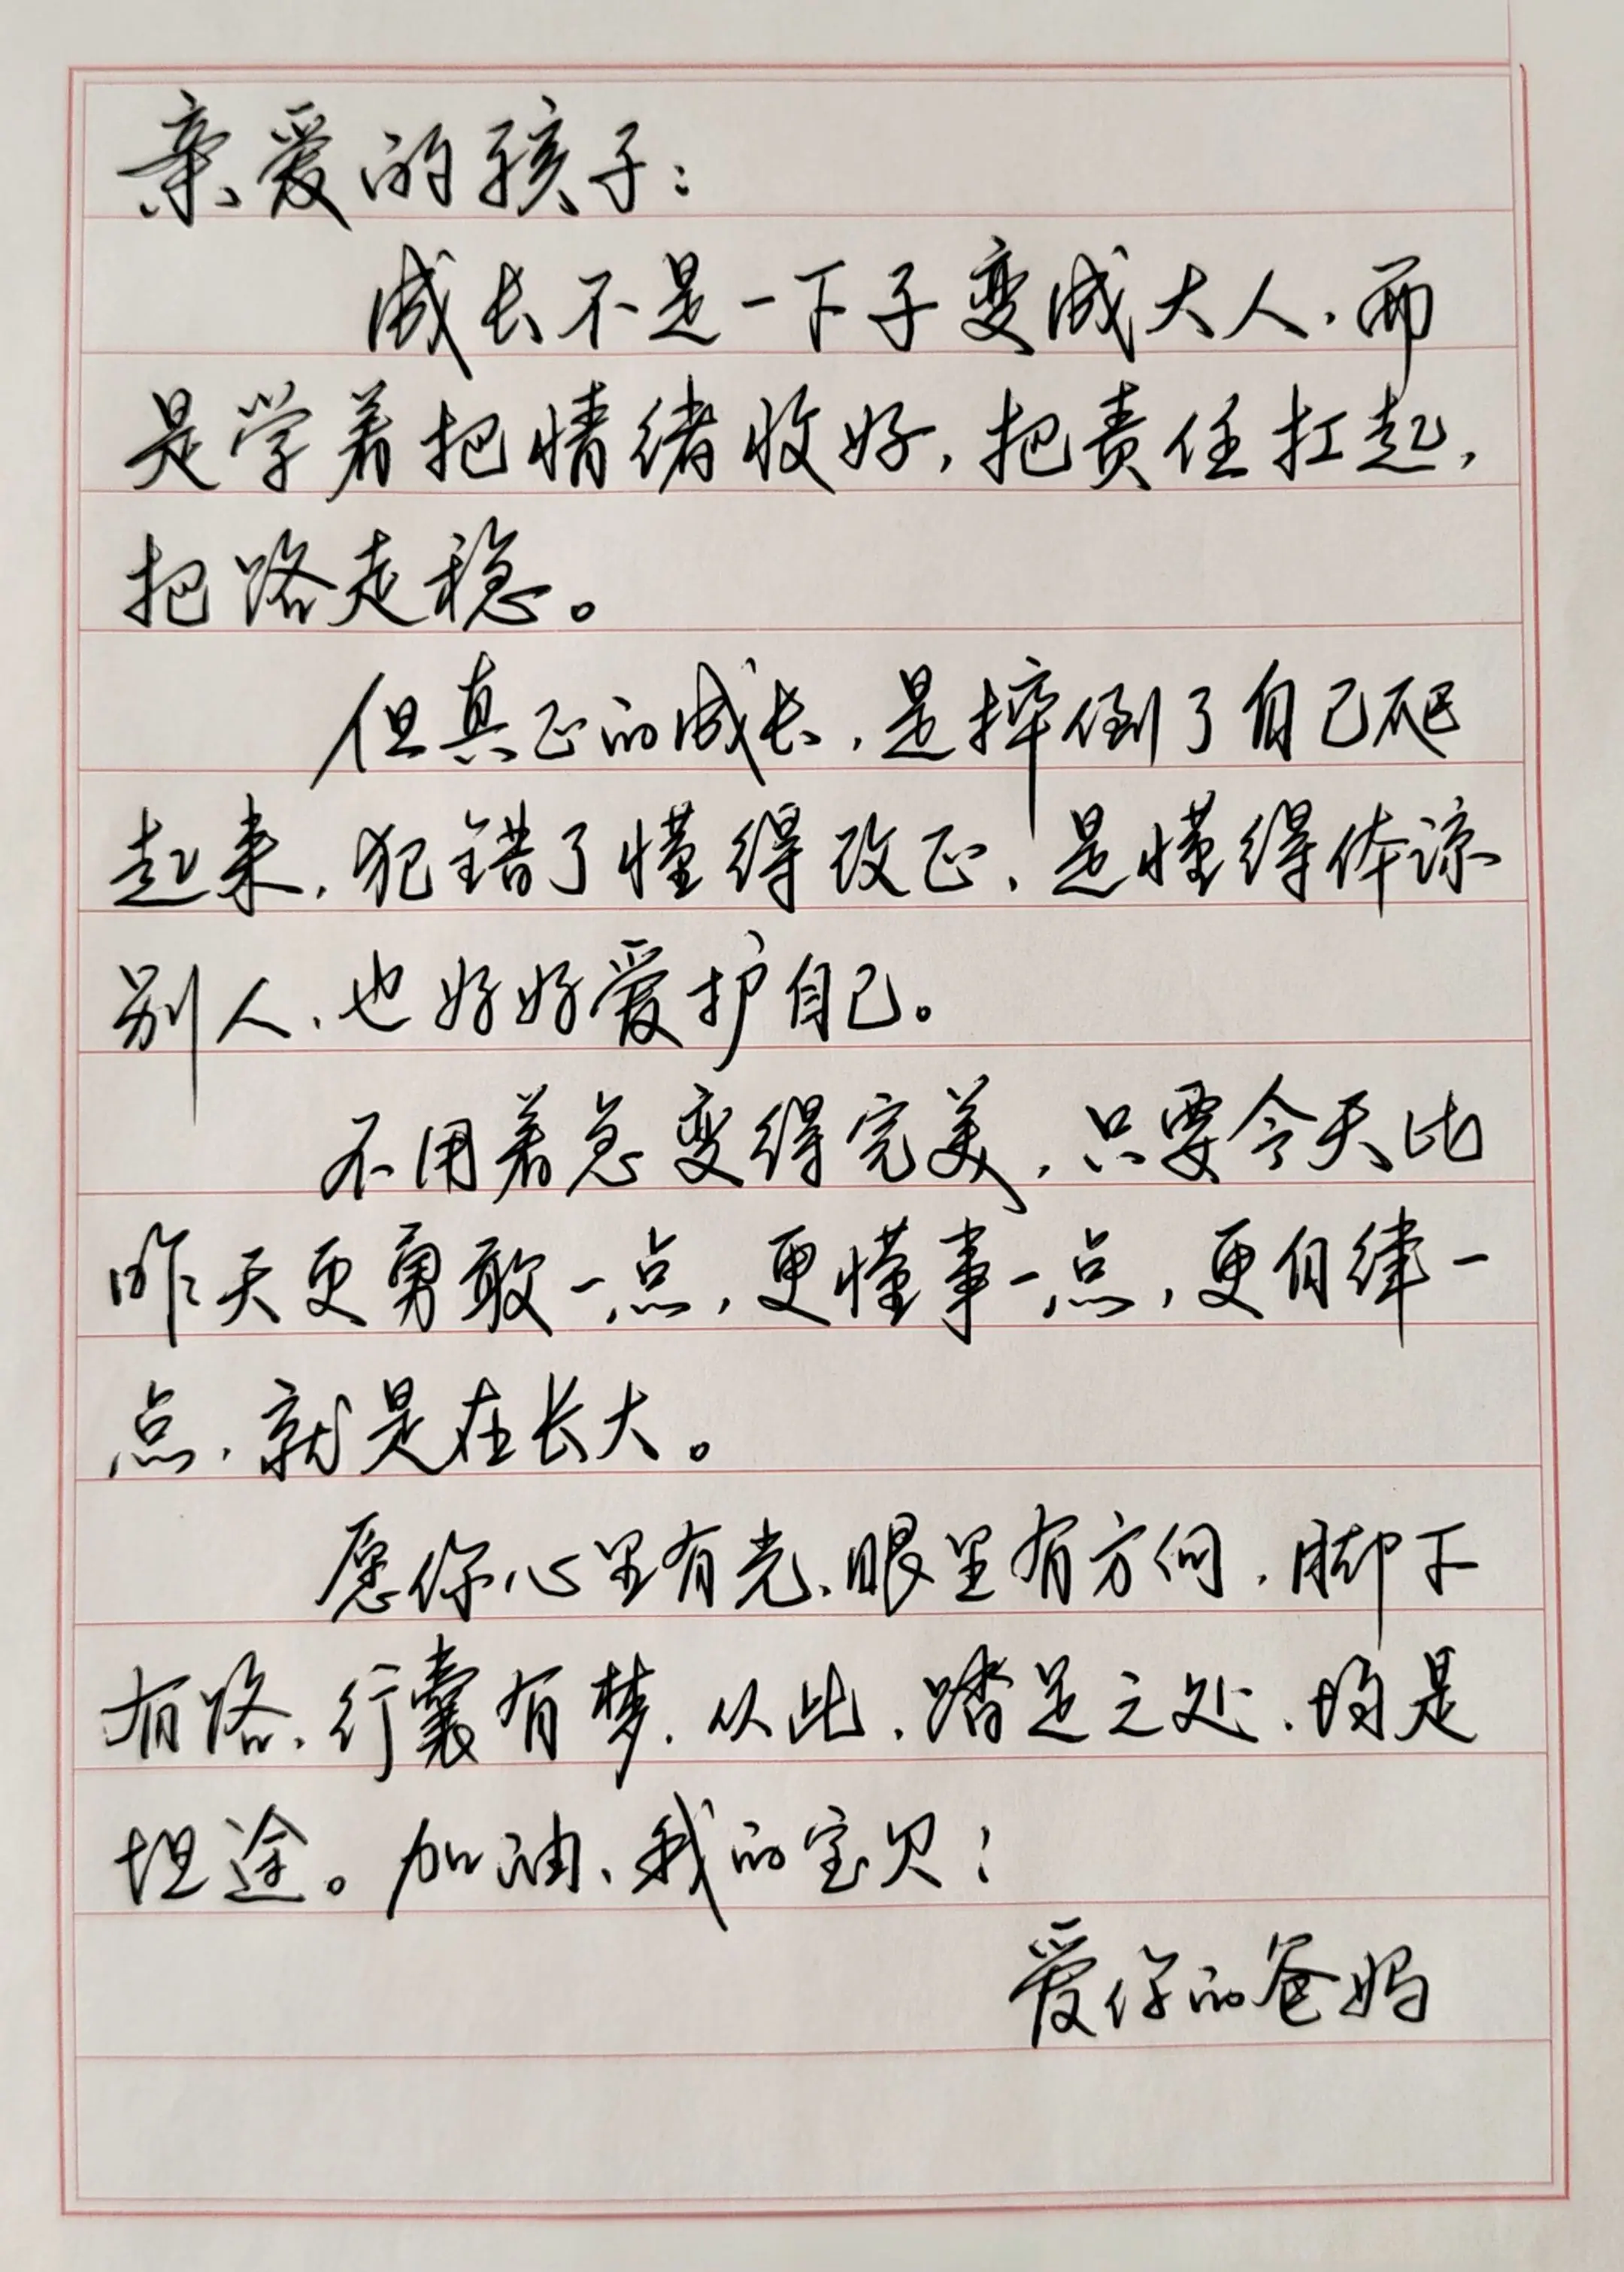 亲爱的孩子：
成长不是一下子变成大人，而
是学着把情绪收好，把责任扛起，
把路走稳。
但真正的成长，是摔倒了自己爬
起来，犯错了懂得改正，是懂得体谅
别人，也好好爱护自己。
不用着急变得完美，只要今天比
昨天更勇敢一点，更懂事一点，更自律一
点，就是在长大。
愿你心里有光、眼里有方向，脚下
有路、行囊有梦。从此，踏足之处，均是
坦途。加油，我的宝贝！
爱你的爸妈